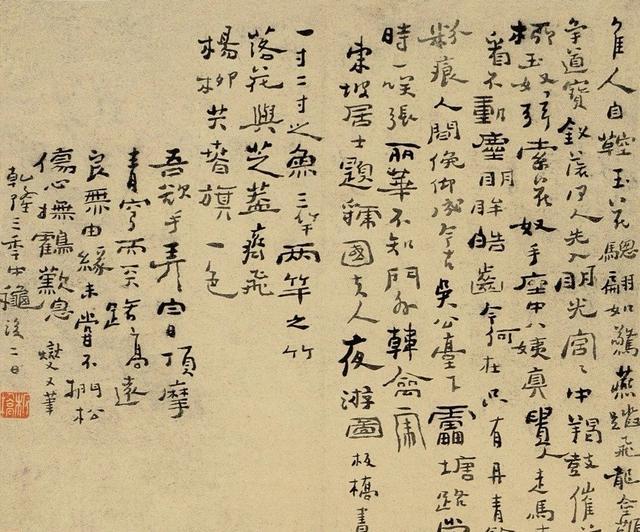 佳人自鞚玉花驄翩如驚燕蹋飛龍金
爭道寶釵落何人先入明光宮宮中羯鼓催
柳玉奴弦索花奴手座中八姨真貴人走馬
看不動塵明眸皓齒今何在只有丹青
粉痕人間俯仰成今古吳公臺下靁塘路
時一笑張麗華不知門外韓禽虎
東坡居士題虢國夫人夜游圖 板橋書
一寸二寸之魚三竿兩竿之竹
落花與芝蓋齊飛
楊柳共春旗一色
吾欲手弄白日頂摩
青穹而天路高遠
良無由緣未嘗不捫松
傷心撫鶴歎息 燮又筆
乾隆三年中龝後二日